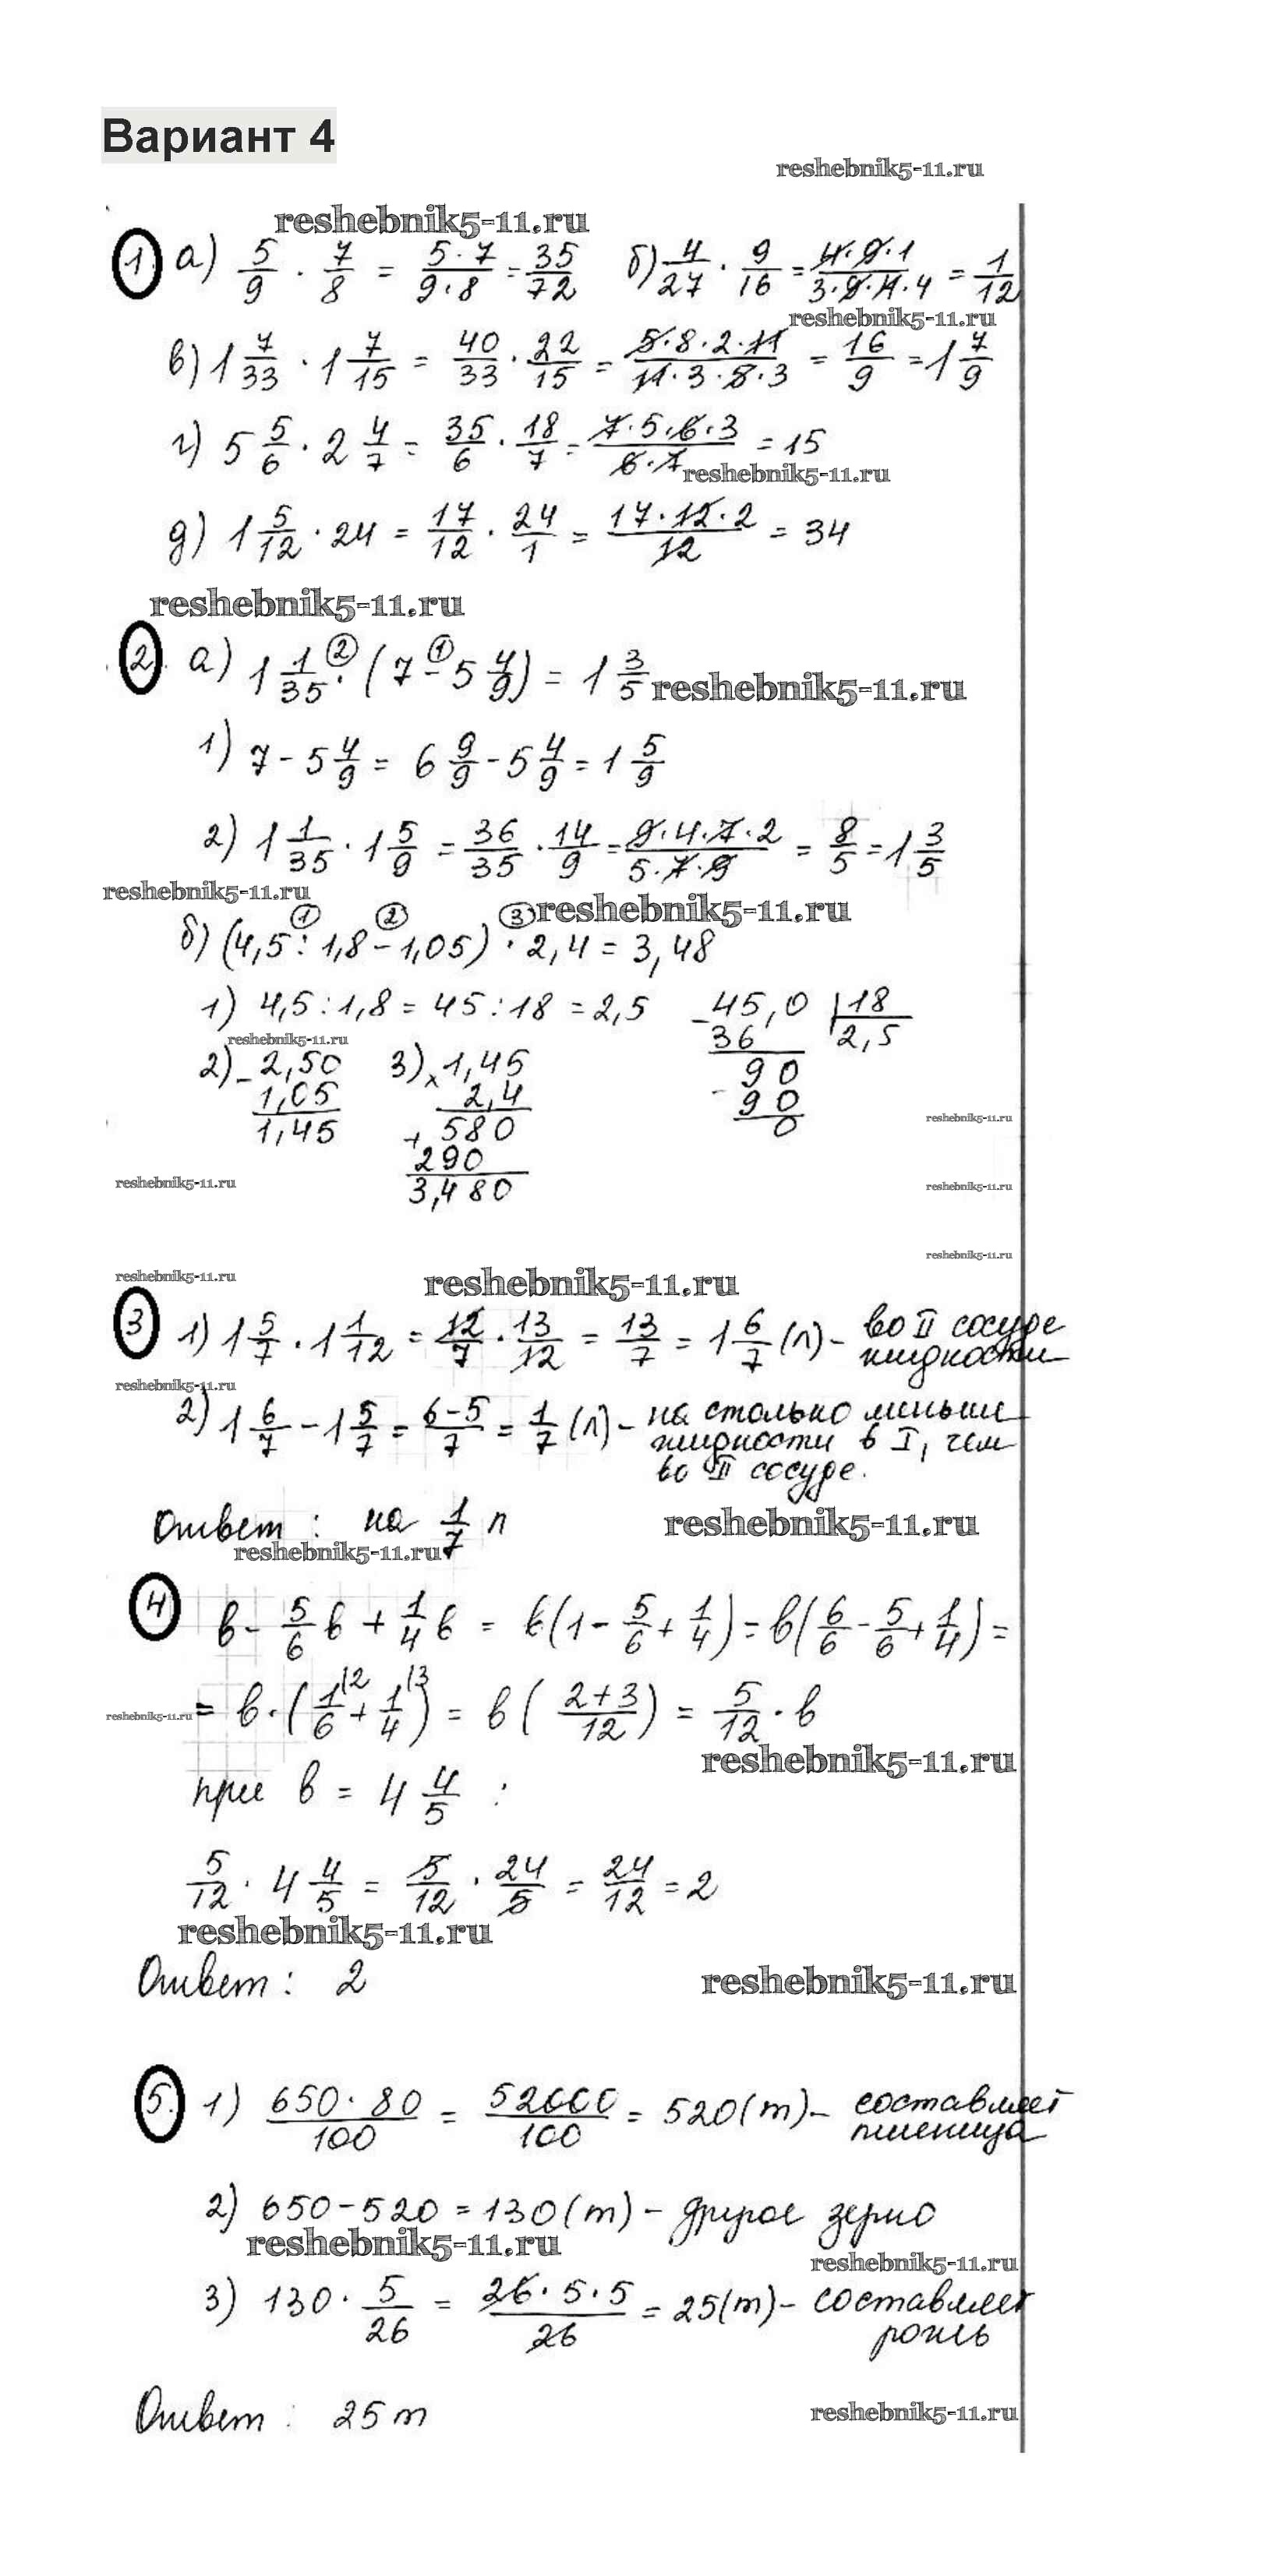 Вариант 4
reshebnik5-11.ru
reshebnik5-11.ru
1. а) 5/9 · 7/8 = 5·7/9·8 = 35/72 б) 4/27 · 9/16 = 4·9·1/3·9·4·4 = 1/12
reshebnik5-11.ru
в) 1 7/33 · 1 7/15 = 40/33 · 22/15 = 5·8·2·11/11·3·5·3 = 16/9 = 1 7/9
г) 5 5/6 · 2 4/7 = 35/6 · 18/7 = 7·5·6·3/6·7 = 15
reshebnik5-11.ru
д) 1 5/12 · 24 = 17/12 · 24/1 = 17·12·2/12 = 34
reshebnik5-11.ru
② ①
2. а) 1 1/35 · (7 - 5 4/9) = 1 3/5 reshebnik5-11.ru
1) 7 - 5 4/9 = 6 9/9 - 5 4/9 = 1 5/9
2) 1 1/35 · 1 5/9 = 36/35 · 14/9 = 9·4·7·2/5·7·9 = 8/5 = 1 3/5
reshebnik5-11.ru
① ② ③ reshebnik5-11.ru
б) (4,5 : 1,8 - 1,05) · 2,4 = 3,48
1) 4,5 : 1,8 = 45 : 18 = 2,5 - 45,0 | 18
reshebnik5-11.ru 36 2,5
2) - 2,50 3) × 1,45 90
1,05 2,4 - 90
1,45 + 580 0
reshebnik5-11.ru
290
3,480
reshebnik5-11.ru reshebnik5-11.ru
reshebnik5-11.ru
reshebnik5-11.ru reshebnik5-11.ru
3 1) 1 5/7 · 1 1/12 = 12/7 · 13/12 = 13/7 = 1 6/7 (л) - во II сосуде
жидкости
reshebnik5-11.ru
2) 1 6/7 - 1 5/7 = 6-5/7 = 1/7 (л) - на столько меньше
жидкости в I, чем
во II сосуде.
Ответ: на 1/7 л reshebnik5-11.ru
reshebnik5-11.ru
4 в - 5/6 в + 1/4 в = в(1 - 5/6 + 1/4) = в(6/6 - 5/6 + 1/4) =
reshebnik5-11.ru = в·(1/6 (2 + 1/4 (3) = в (2+3/12) = 5/12 · в
reshebnik5-11.ru
при в = 4 4/5 :
5/12 · 4 4/5 = 5/12 · 24/5 = 24/12 = 2
reshebnik5-11.ru
Ответ: 2 reshebnik5-11.ru
5. 1) 650·80/100 = 52000/100 = 520 (т) - составляет
пшеница
2) 650 - 520 = 130 (т) - другое зерно
reshebnik5-11.ru
reshebnik5-11.ru
3) 130 · 5/26 = 26·5·5/26 = 25 (т) - составляет
рожь
Ответ: 25 т reshebnik5-11.ru